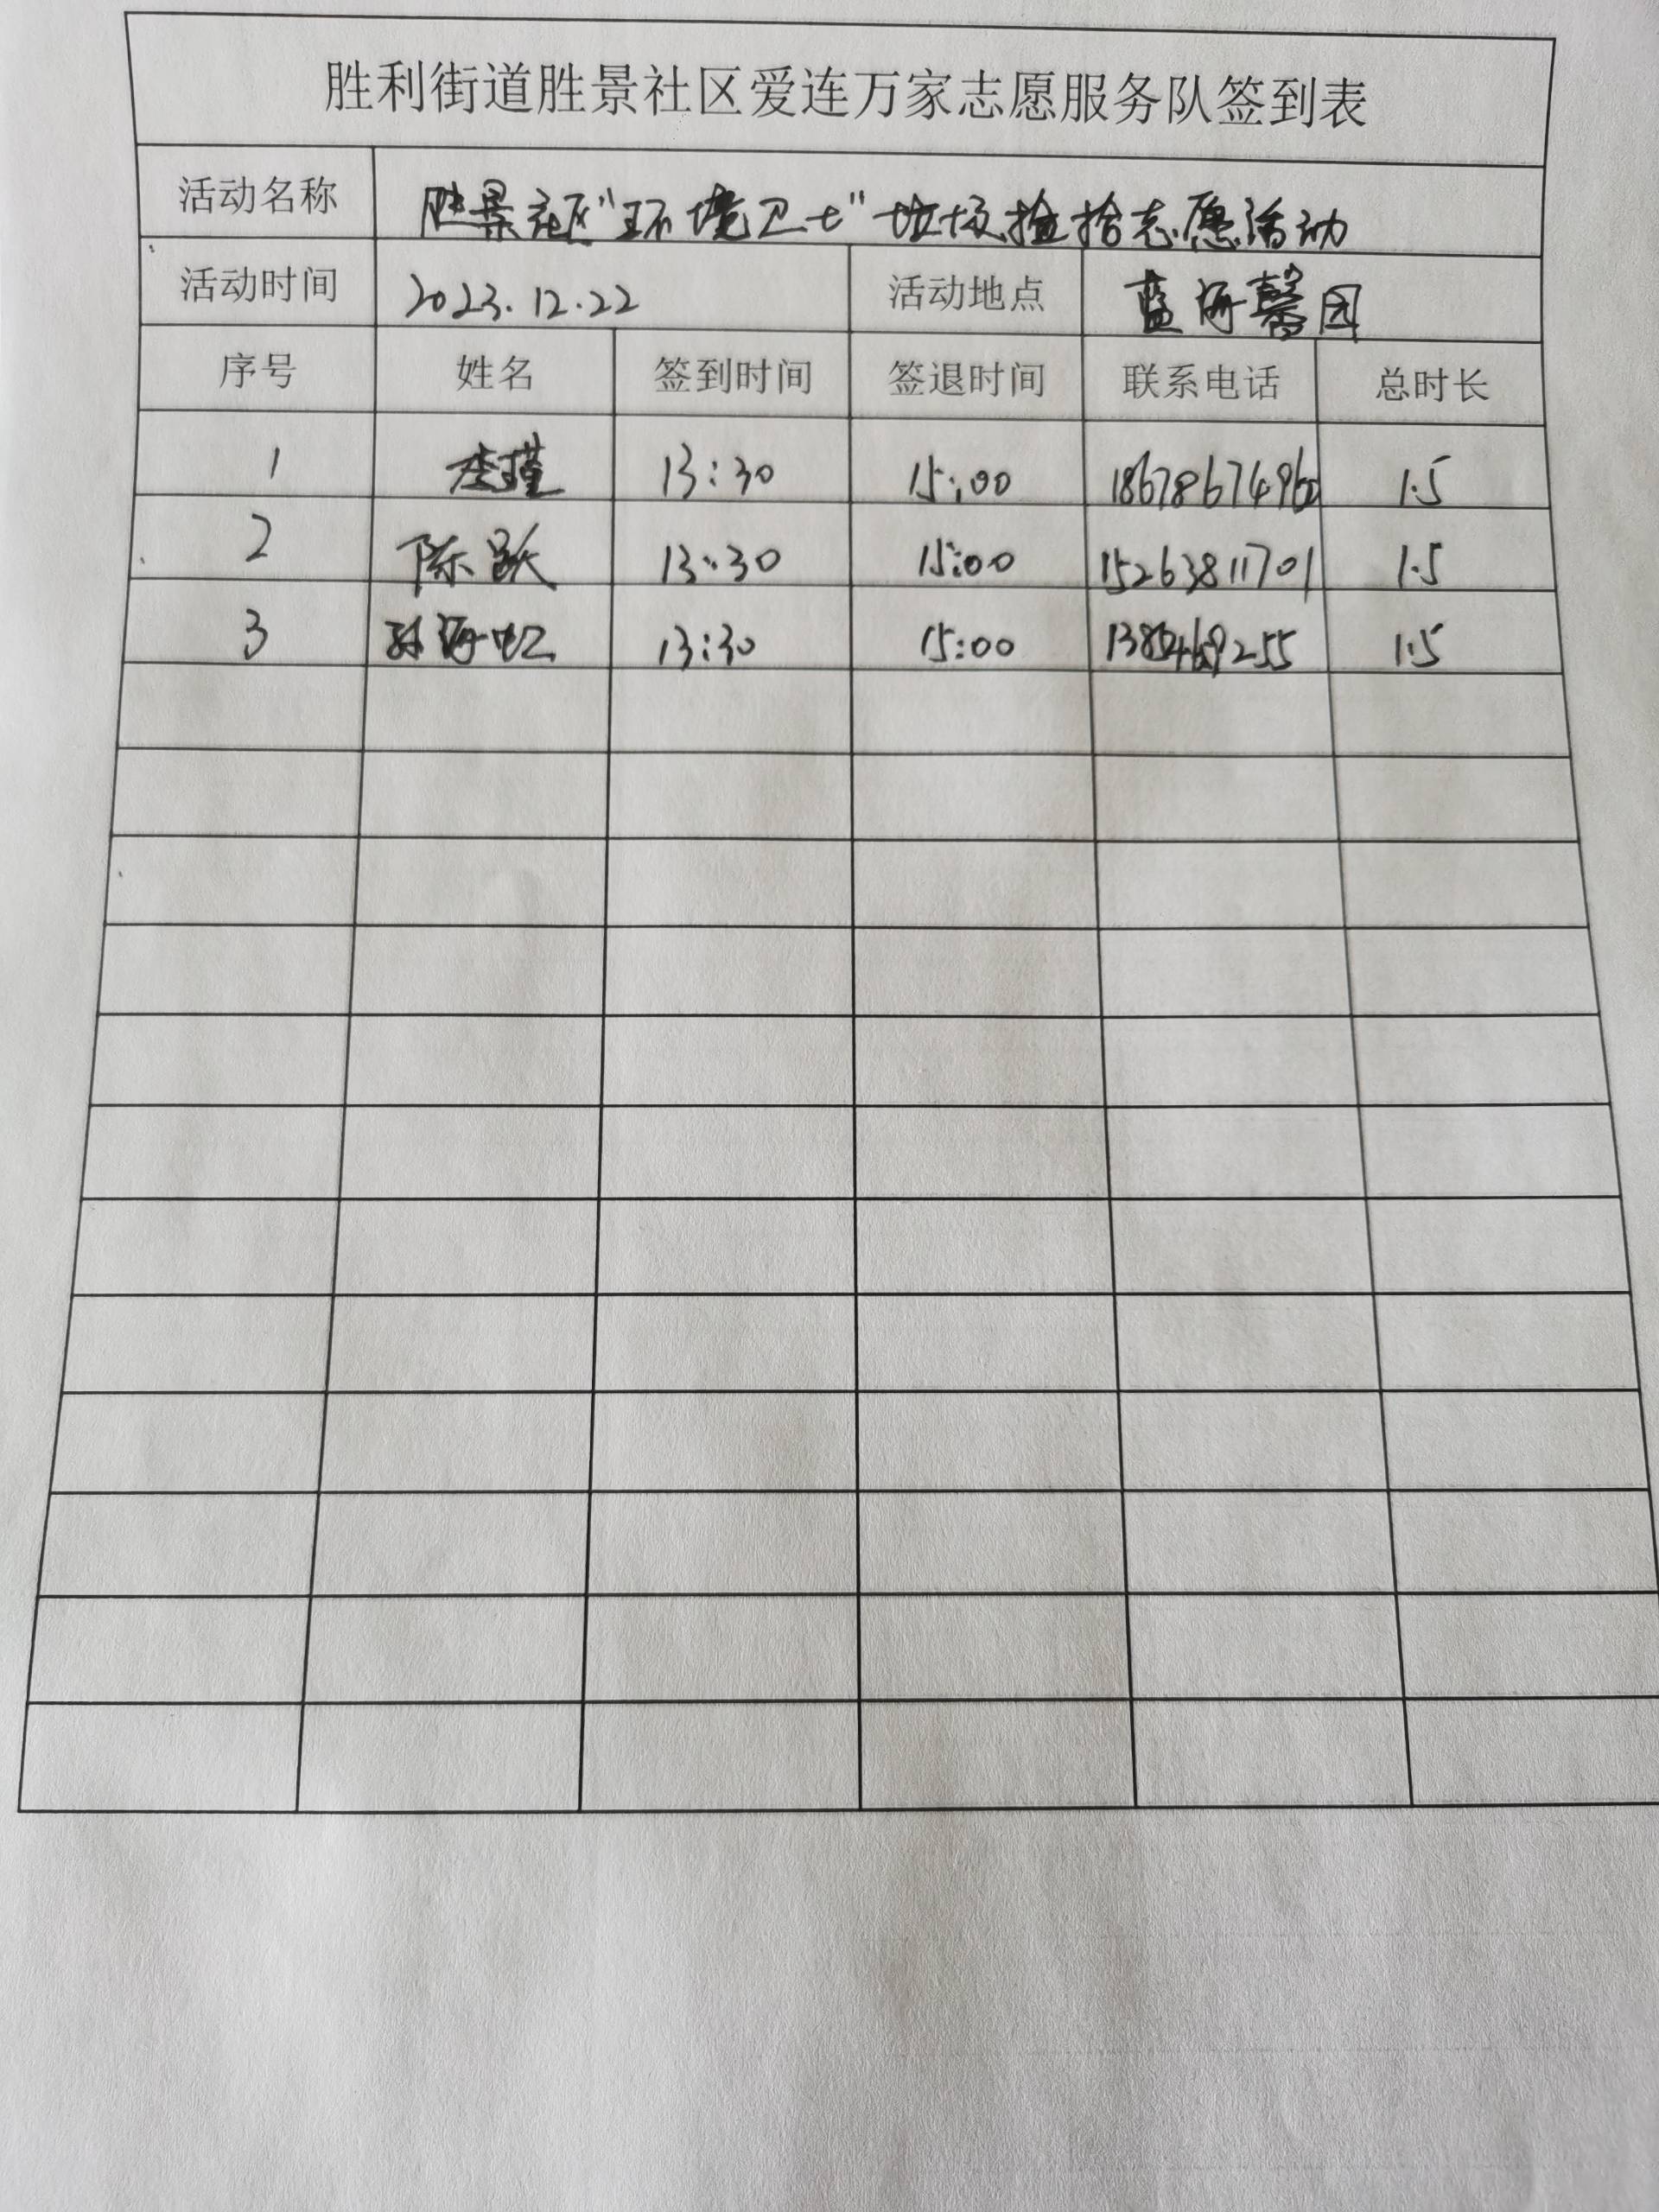 胜利街道胜景社区爱连万家志愿服务队签到表
活动名称 胜景社区"环境卫士"垃圾捡拾志愿活动
活动时间 2023.12.22 活动地点 蓝海馨园
序号 姓名 签到时间 签退时间 联系电话 总时长
1 李瑾 13:30 15:00 1.5
2 陈跃 13:30 15:00 15263811701 1.5
3 孙海虹 13:30 15:00 1.5